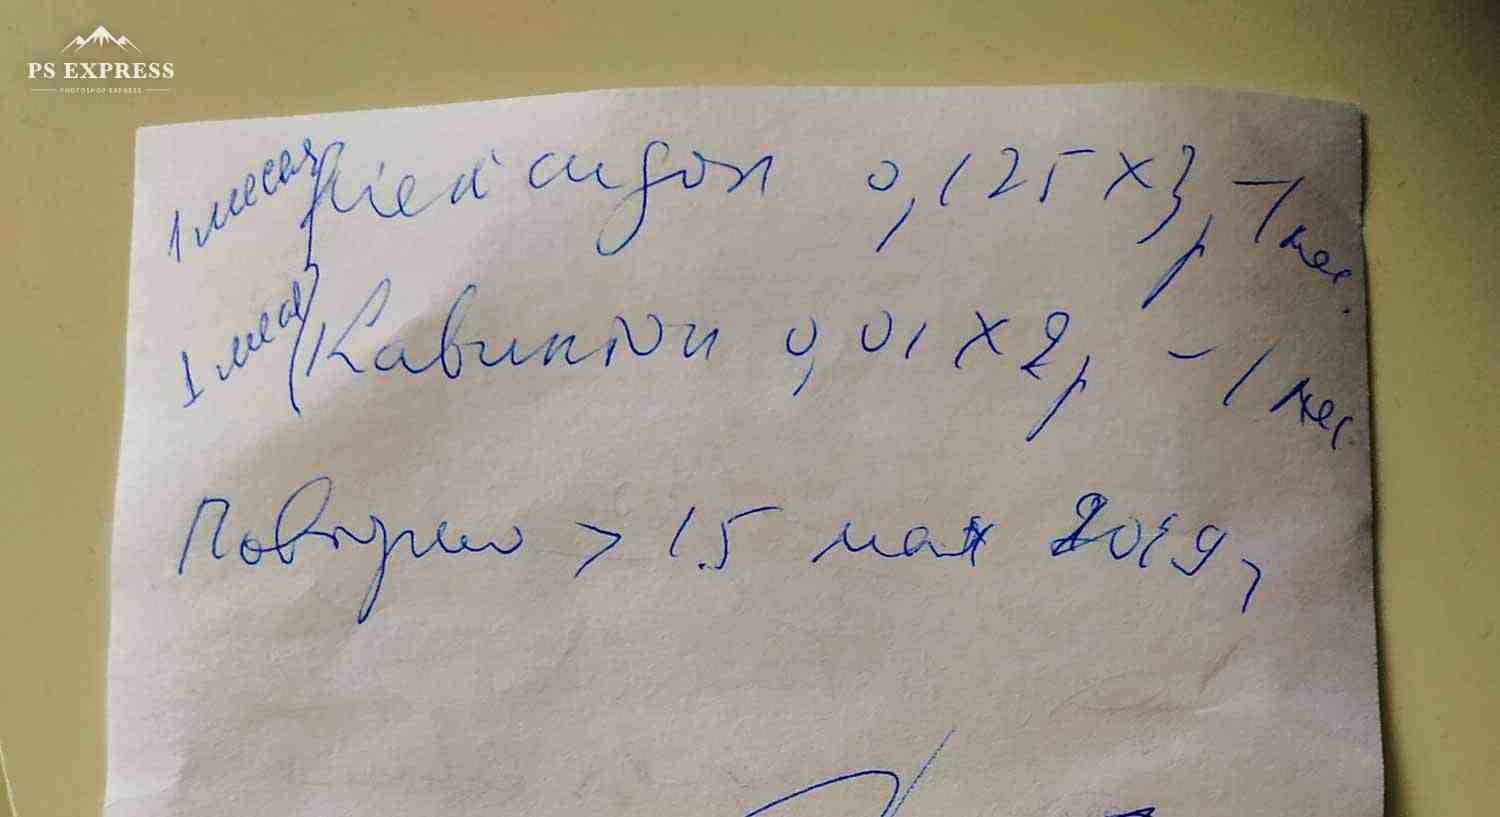 PS EXPRESS
PHOTOSHOP EXPRESS
1 месяц Мексидол 0,125 х 3 р - 1 мес.
1 месяц Кавинтон 0,01 х 2 р - 1 мес
Повторно > 15 мая 2019,